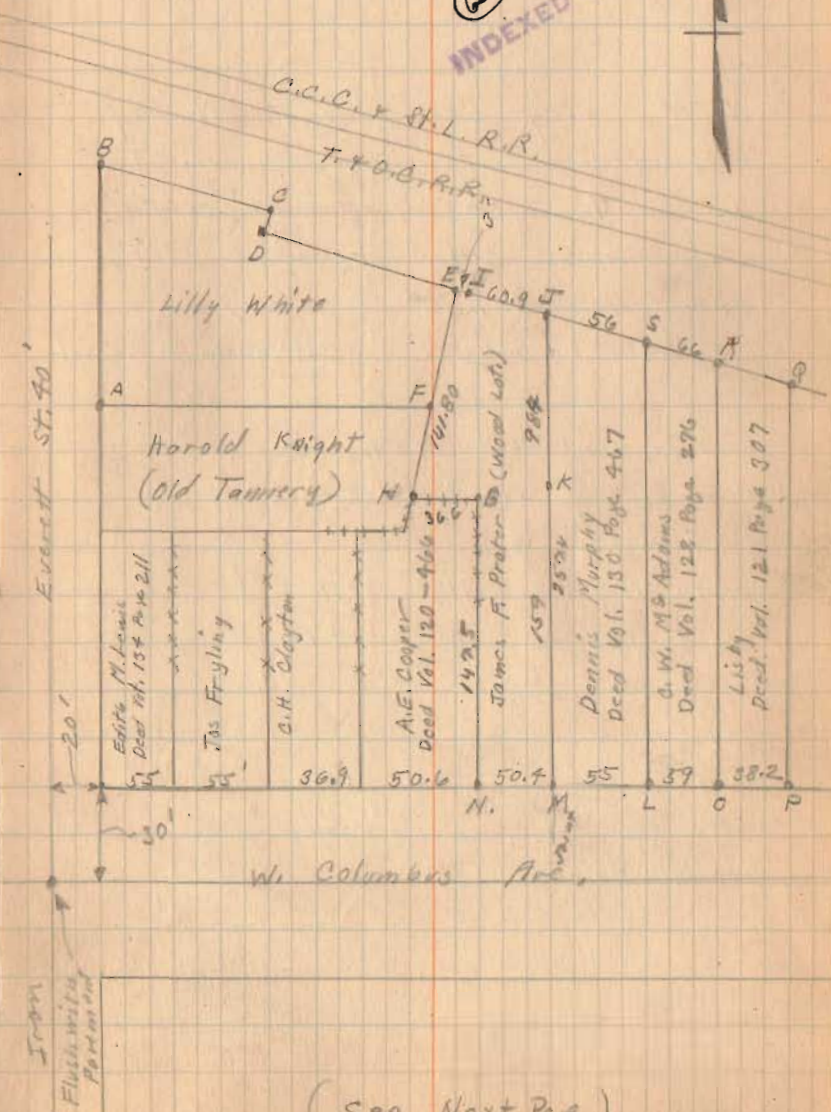 INDEXED
C.C.C. & St. L. R.R.
T. & O.C. R.R.
B
C
D
E
I
60.9
J
56
S
66
R
Q
Lilly White
A
F
141.80
Harold Knight
(Old Tannery)
H
G
Everett St. 40'
Edith M. Lewis
Deed Vol. 134 Page 211
Jas Fryling
C.H. Clayton
A.E. Cooper
Deed Vol. 120-466
142.5
James F. Prater (Wood Lot)
984
K
159
Dennis Murphy
Deed Vol. 130 Page 467
C.W. McAdams
Deed Vol. 128 Page 276
Deed Vol. 121 Page 307
20'
55
55'
36.9
50.6
50.4
55
59
38.2
N.
M
L
O
P
30'
W. Columbus Ave.
Iron
Flush with
Pavement
(See Next Page)